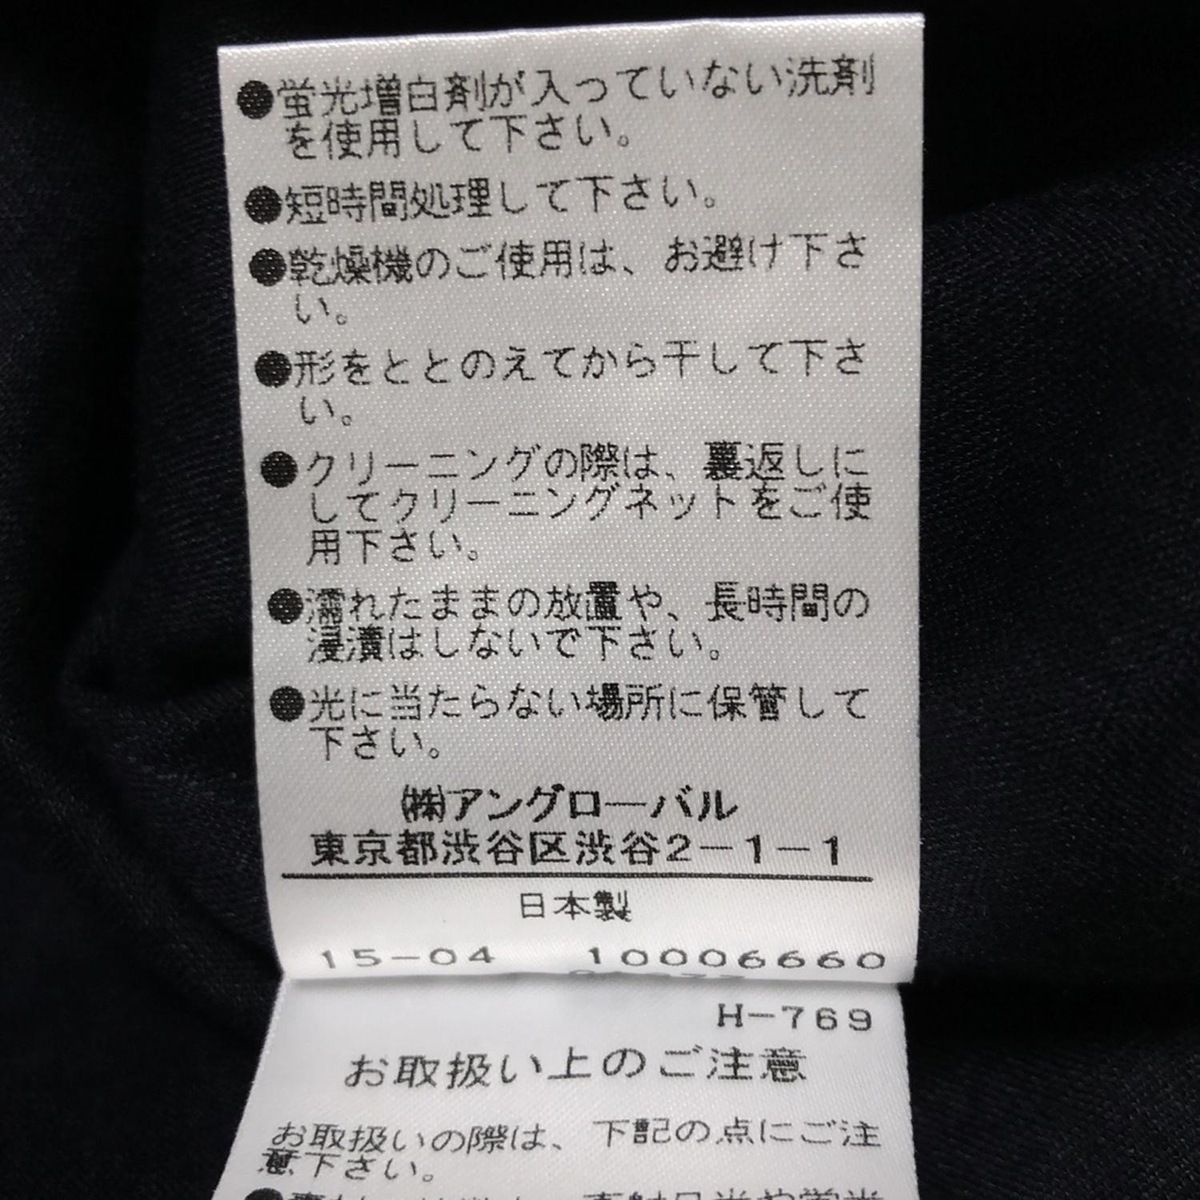 ●蛍光増白剤が入っていない洗剤
を使用して下さい。
●短時間処理して下さい。
●乾燥機のご使用は、お避け下さ
い。
●形をととのえてから干して下さ
い。
●クリーニングの際は、裏返しに
してクリーニングネットをご使
用下さい。
●濡れたままの放置や、長時間の
浸漬はしないで下さい。
●光に当たらない場所に保管して
下さい。
㈱アングローバル
東京都渋谷区渋谷2-1-1
日本製
15-04 10006660
H-769
お取扱い上のご注意
お取扱いの際は、下記の点にご注
意下さい。